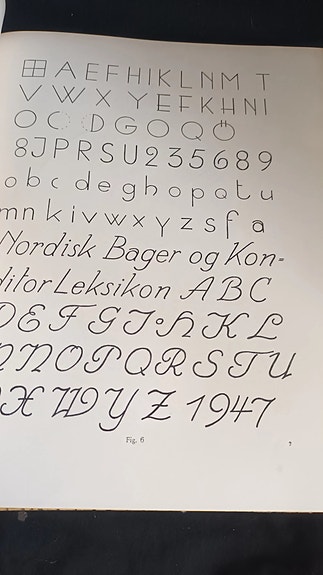 A E F H I K L N M T
V W X Y E F K H N I
O C D G O Q
8 J P R S U 2 3 5 6 8 9
o b c d e g h o p q t u
m n k i v w x y z s f a
Nordisk Bager og Kon-
ditor Leksikon A B C
D E F G I J H K L
N N O P Q R S T U
X W Y Z 1947
Fig. 6